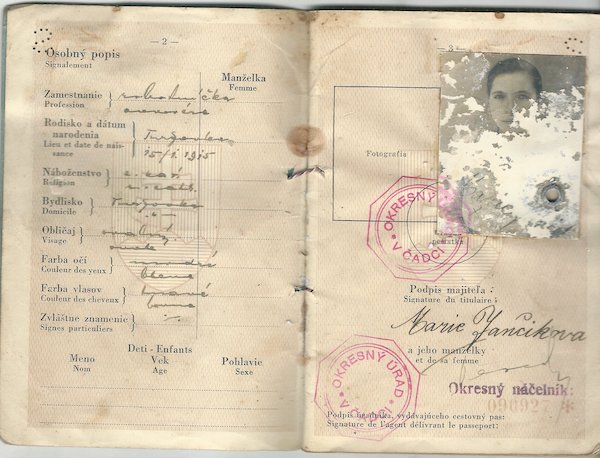 — 2 —
Osobný popis
Signalement
Manželka
Femme
Zamestnanie
Profession
robotníčka
Rodisko a dátum
narodenia
Lieu et date de nais-
sance
Turzovka
15/I. 1915
Náboženstvo
Religion
r. kat.
Bydlisko
Domicile
Turzovka
Obličaj
Visage
oválný
ovale
Farba očí
Couleur des yeux
modré
bleue
Farba vlasov
Couleur des cheveux
Zvláštne znamenie
Signes particuliers
Deti - Enfants
Meno
Nom
Vek
Age
Pohlavie
Sexe
— 3 —
Fotografia
OKRESNÝ
V ČADCI
Podpis majiteľa :
Signature du titulaire :
Marie Jančikova
a jeho manželky
et de sa femme
OKRESNÝ ÚRAD
V ČADCI
Okresný náčelník:
Podpis úradníka, vydávajúceho cestovný pas:
Signature de l'agent délivrant le passeport: